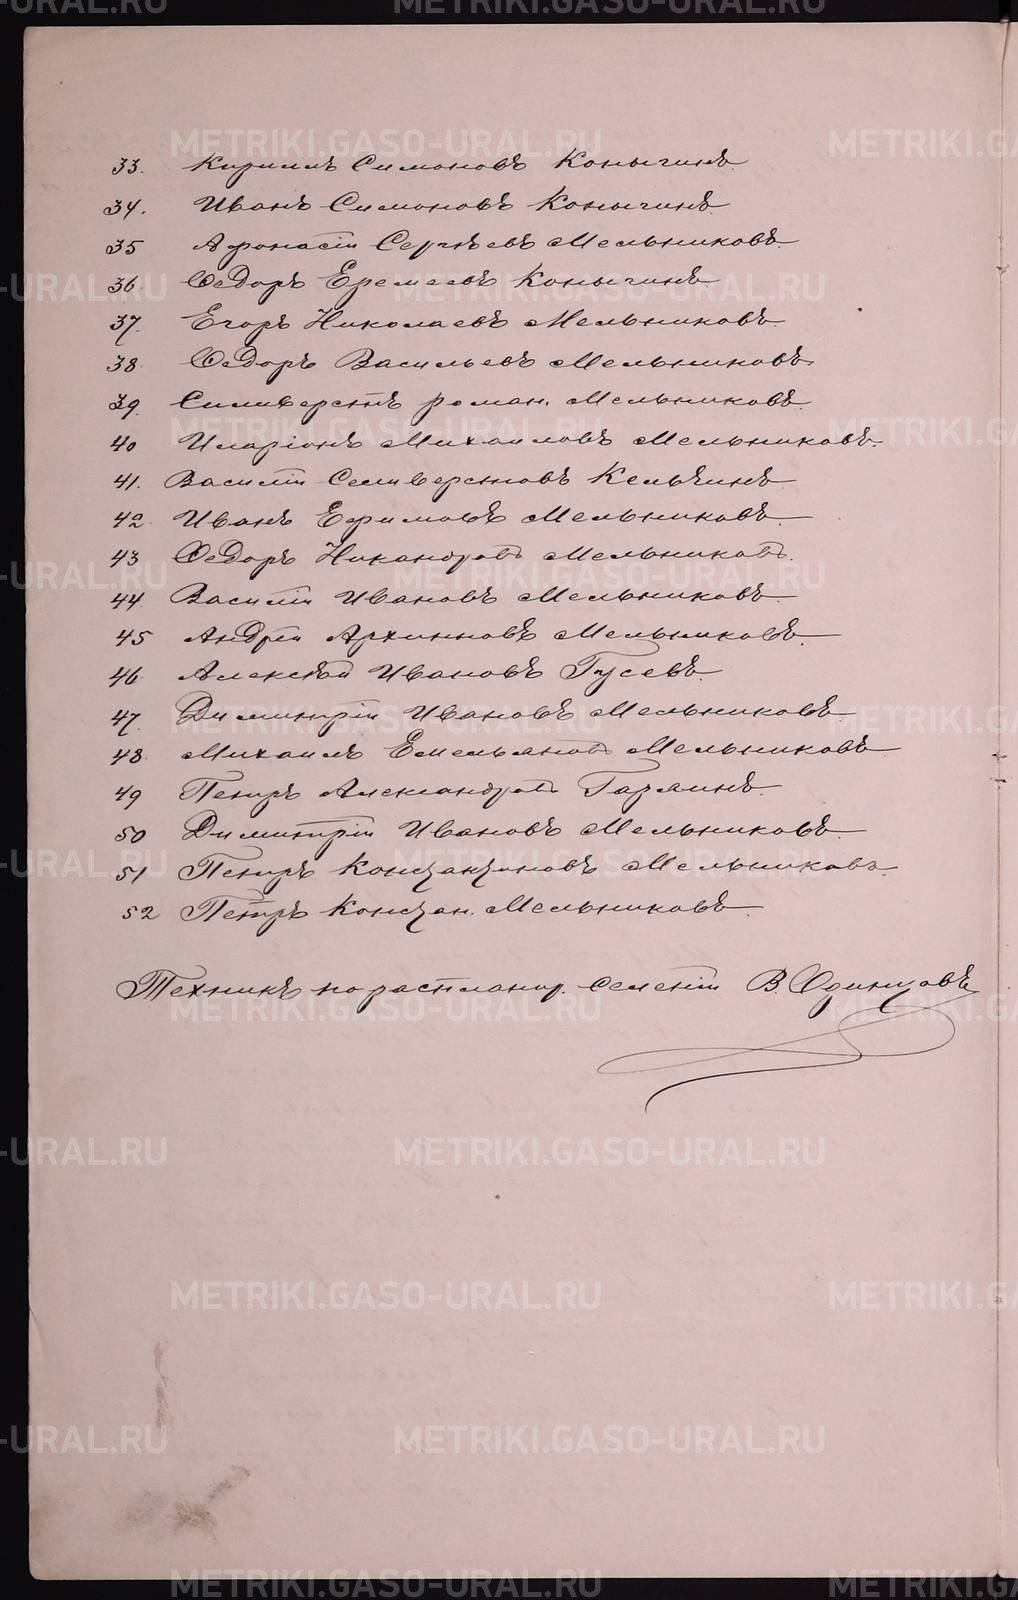 33. Кириллъ Симоновъ Конычинъ
34. Иванъ Симоновъ Конычинъ
35 Афонасіи Сергѣевъ Мельниковъ
36. Ѳедоръ Еремеевъ Конычинъ
37. Егоръ Николаевъ Мельниковъ
38. Ѳедоръ Васильевъ Мельниковъ
39. Силиверстъ роман. Мельниковъ
40 Иларіонъ Михаиловъ Мельниковъ
41. Василіи Селиверстовъ
42. Иванъ Ефимовъ Мельниковъ
43 Ѳедоръ Никандровъ Мельниковъ
44. Василіи Ивановъ Мельниковъ
45 Андрѣи Архиповъ Мельниковъ
46 Алексѣй Ивановъ Гусевъ
47. Димитріи Ивановъ Мельниковъ
48. Михаилъ Емельяновъ Мельниковъ
49 Петръ Александровъ
50 Димитріи Ивановъ Мельниковъ
51 Петръ Константиновъ Мельниковъ
52 Петръ Констан. Мельниковъ
Техникъ по распланир. селеніи В. Одинцовъ
METRIKI.GASO-URAL.RU